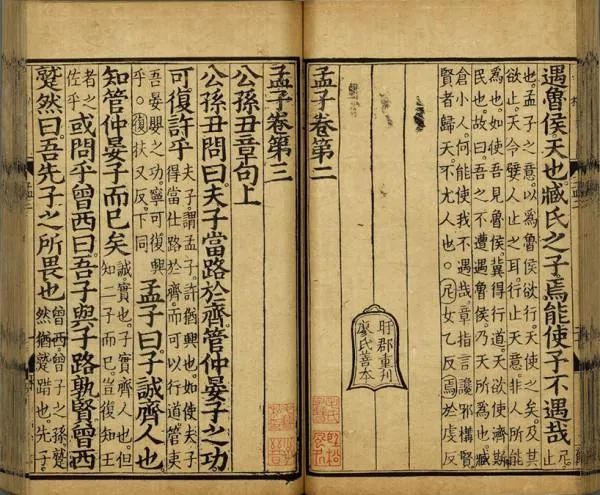 遇魯侯天也臧氏之子焉能使子不遇哉尼
也孟子之意以為魯侯欲行天使之矣及其
欲止天令嬖人止之耳行止天意非人所能
為也如使吾見魯侯冀得行道天欲使濟斯
民也故曰吾之不遭遇魯侯乃天所為也臧
倉小人何能使我不遇哉章指言讒邪構賢
賢者歸天不尤人也尼女乙反焉於虔反
盱郡重刊
廖氏善本
孟子卷第二
孟子卷第三
公孫丑章句上
公孫丑問曰夫子當路於齊管仲晏子之功
可復許乎夫子謂孟子許猶興也如使夫子
得當仕路於齊而可以行道管夷
吾晏嬰之功寧可復興
乎復扶又反下同
孟子曰子誠齊人也
知管仲晏子而已矣誠實也子實齊人也但
知二子而已豈復知王
者之
佐乎
或問乎曾西曰吾子與子路孰賢曾西
蹵然曰吾先子之所畏也曾西曾子之孫蹵
然猶蹵踖也先子